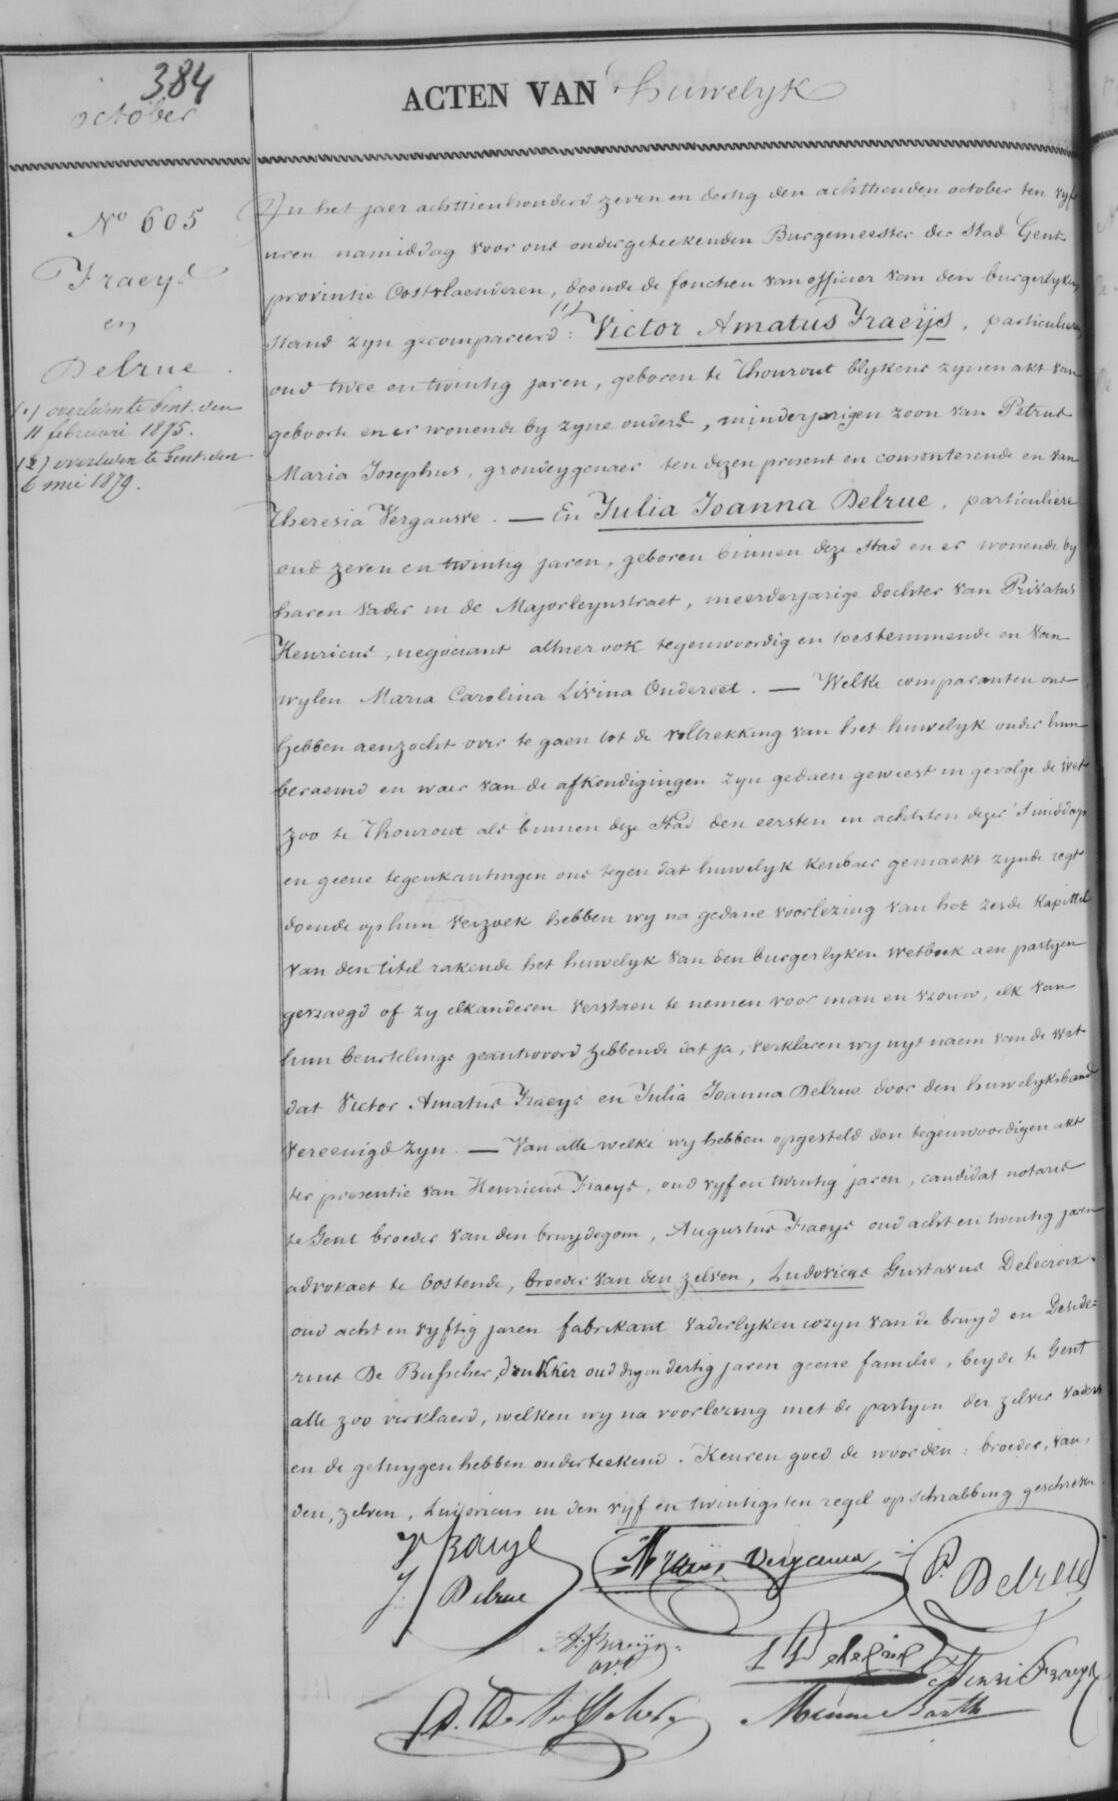 384
october
ACTEN VAN huwelyk
N° 605
Fraeys
en
Delrue.
(1) overleden te Gent den
11 februari 1875.
(2) overleden te Gent den
6 mei 1879.
In het jaer achttienhonderd zeven en dertig den achttienden october ten vyf
uren namiddag voor ons ondergeteekenden Burgemeester der Stad Gent
provintie Oostvlaenderen, doende de fonctien van officier van den burgerlyken
stand zyn gecompareerd: (1) Victor Amatus Fraeijs, particulier
oud twee en twintig jaren, geboren te Thourout blykens zynen akt van
geboorte en er wonende by zyne ouders, minderjarigen zoon van Petrus
Maria Josephus, grondeygenaer ten dezen present en consenterende en van
Theresia Vergauwe. — En Julia Joanna Delrue, particuliere
oud zeven en twintig jaren, geboren binnen deze Stad en er wonende by
haren vader in de Majorleynstraet, meerderjarige dochter van Privatus
Henricus, negociant alhier ook tegenwoordig en toestemmende en van
wylen Maria Carolina Livina Ondereet. — Welke comparanten ons
hebben aenzocht over te gaen tot de voltrekking van het huwelyk onder hun
beraemd en waer van de afkondigingen zyn gedaen geweest in gevolge de wet
zoo te Thourout als binnen deze Stad den eersten en achtsten dezer 's middags
en geene tegenkantingen ons tegen dat huwelyk kenbaer gemaekt zynde regt
doende op hun verzoek hebben wy na gedane voorlezing van het zesde kapittel
van den titel rakende het huwelyk van den burgerlyken wetboek aen partyen
gevraegd of zy elkanderen verstaen te nemen voor man en vrouw, elk van
hun beurtelings geantwoord hebbende dat ja, verklaren wy uyt naem van de wet
dat Victor Amatus Fraeys en Julia Joanna Delrue door den huwelyksband
vereenigd zyn. — Van alle welke wy hebben opgesteld den tegenwoordigen akt
ter presentie van Henricus Fraeys, oud vyf en twintig jaren, candidat notaris
te Gent broeder van den bruydegom, Augustus Fraeys oud acht en twintig jaren
advokaet te Oostende, broeder van den zelven, Ludovicus Gustavus Delecroix
oud acht en vyftig jaren fabrikant vaderlyken cozyn van de bruyd en Deside=
rius De Busscher, drukker oud dry en dertig jaren geene familie, beyde te Gent
alle zoo verklaerd, welken wy na voorlezing met de partyen der zelver vaders
en de getuygen hebben onderteekend. Keuren goed de woorden: broeder, van,
den, zelven, Ludovicus in den vyf en twintigsten regel op schrabbing geschreven.
V Fraeys
J. Delrue
Fraeijs Vergauwe
P. Delrue
A. Fraeijs
avt
L G Delecroix
Henri Fraeys
D. De Busscher
Minne Barth